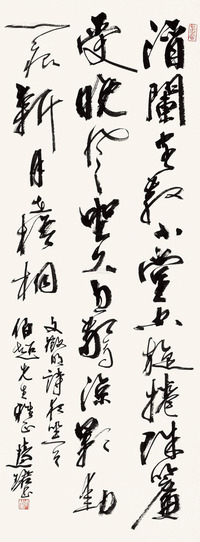 酒闌客散小堂空旋捲珠簾
受晚風坐久忽驚涼影動
一痕新月在梧桐
文徵明詩夜坐
先生雅正